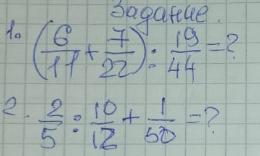 Задание.
1. (6/11 + 7/22) : 19/44 = ?
2. 2/5 : 10/12 + 1/50 = ?